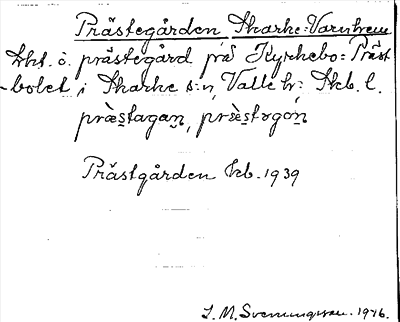 Prästegården Skarke-Varnhem
khf. o. prästegård på Kyrkebo= Präst
-bolet i Skarke s:n, Valle hr: Skb. l.
præstagan, præstogón
Prästgården kb. 1939
J. M. Svenungsson. 1946.